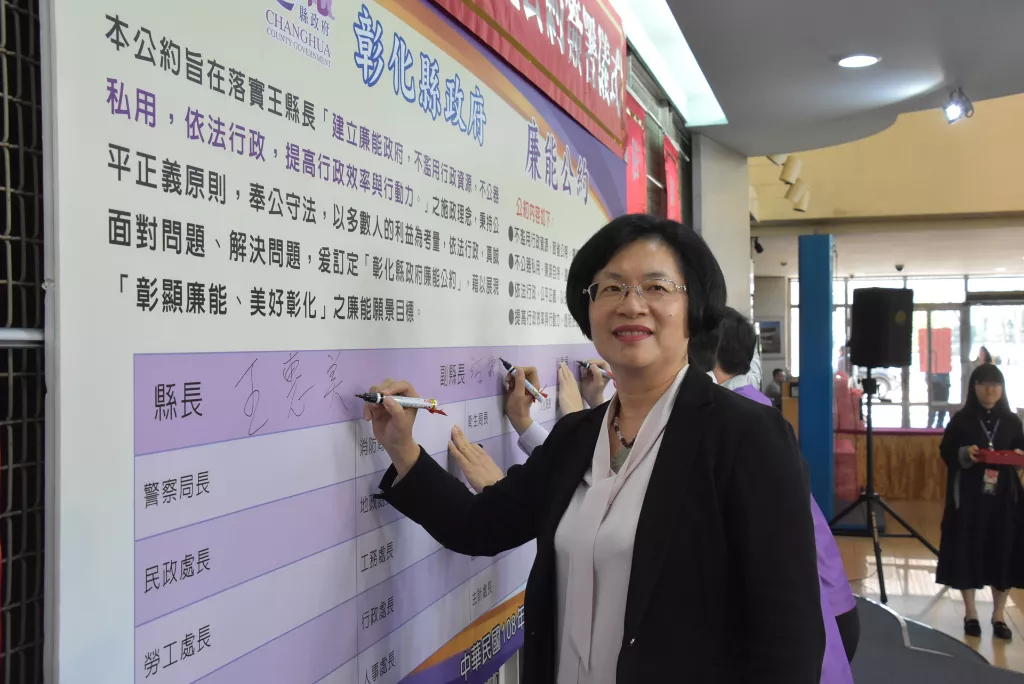 縣政府
CHANGHUA
COUNTY GOVERNMENT
彰化縣政府
廉能公約
公約簽署儀式
本公約旨在落實王縣長「建立廉能政府，不濫用行政資源，不公器
私用，依法行政，提高行政效率與行動力。」之施政理念，秉持公
平正義原則，奉公守法，以多數人的利益為考量，依法行政，真誠
面對問題、解決問題，爰訂定「彰化縣政府廉能公約」，藉以展現
「彰顯廉能、美好彰化」之廉能願景目標。
公約內容如下：
●不濫用行政資源，
●不公器私用，
●依法行政，公平正義，
●提高行政效率與行動力，
縣長 王惠美
副縣長
警察局長
消防
衛生局長
民政處長
地政處
勞工處長
工務處長
行政處長
主計處長
人事處長
中華民國108年